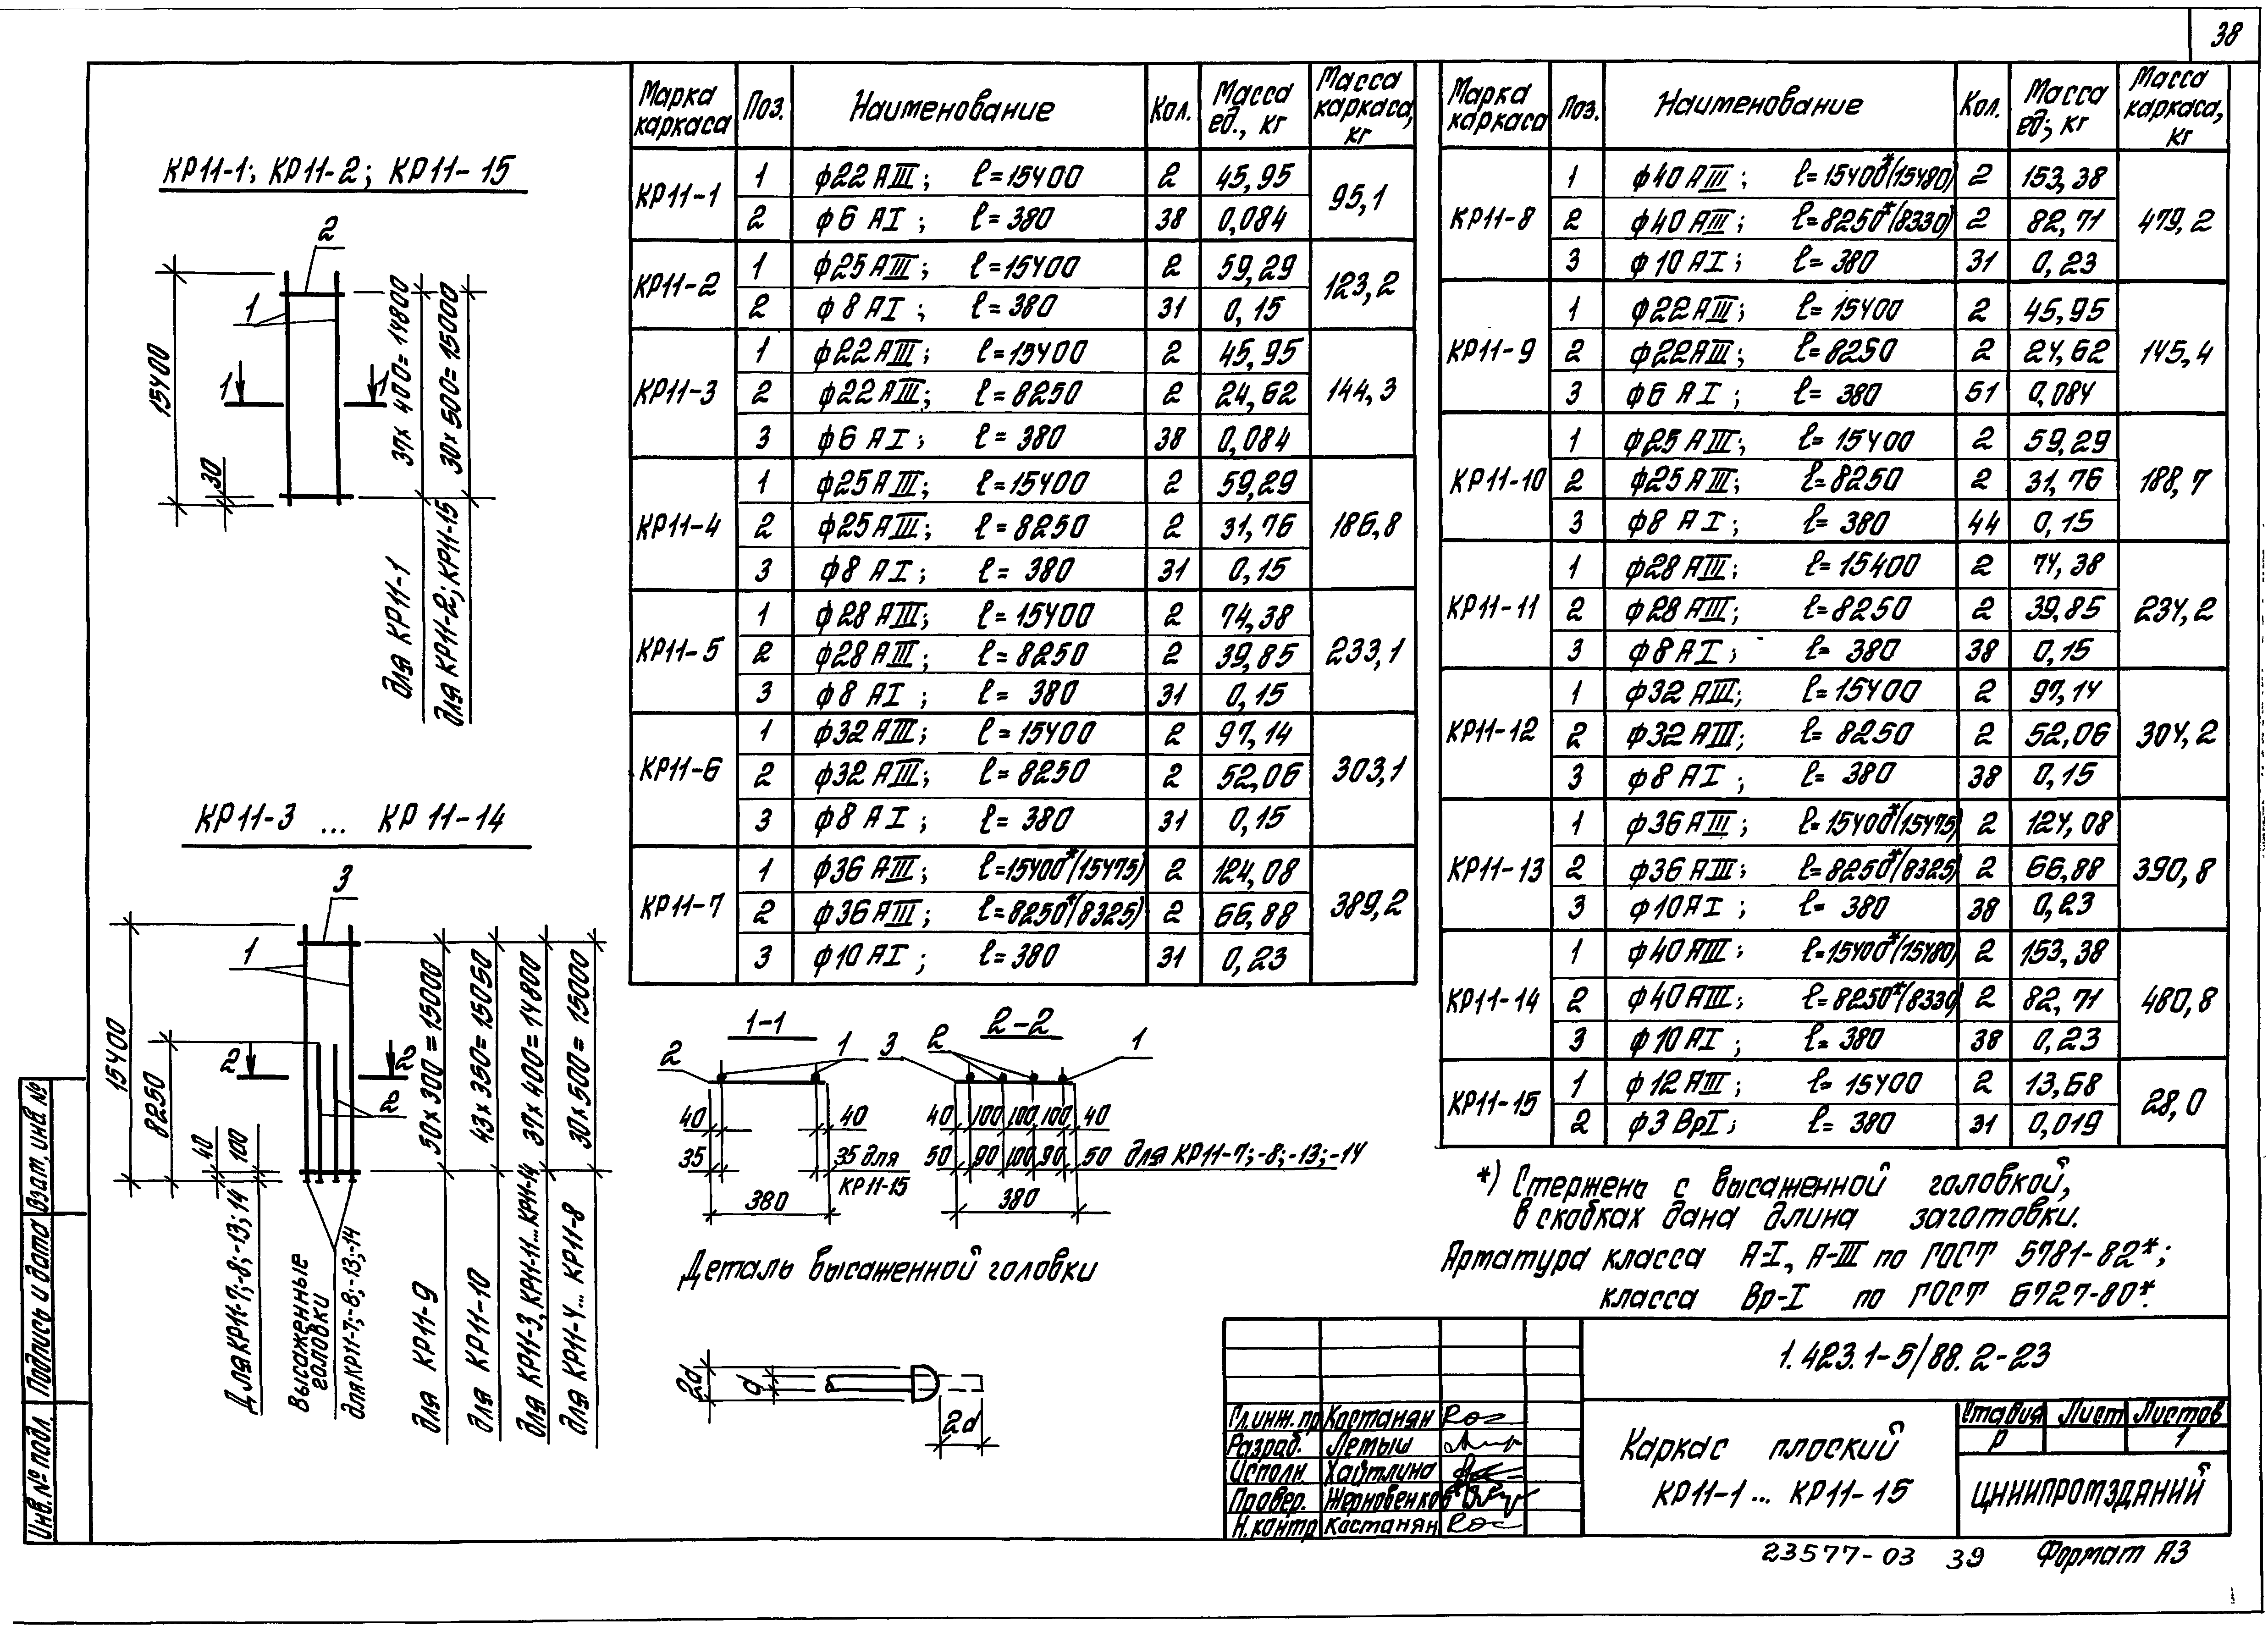 38
КР11-1; КР11-2; КР11-15
2
1
15400
30
1 1
37×400=14800
30×500=15000
для КР11-1
для КР11-2; КР11-15
КР11-3 ... КР11-14
3
1
15400
8250
2 2
2
40
100
50×300=15000
43×350=15050
37×400=14800
30×500=15000
Для КР11-7;-8;-13;14
Высаженные
головки
для КР11-7;-8;-13;-14
для КР11-9
для КР11-10
для КР11-3, КР11-11...КР11-14
для КР11-4... КР11-8
Марка каркаса Поз. Наименование Кол. Масса ед., кг Масса каркаса, кг
КР11-1 1 ϕ22 AIII; ℓ=15400 2 45,95 95,1
2 ϕ6 AI; ℓ=380 38 0,084
КР11-2 1 ϕ25 AIII; ℓ=15400 2 59,29 123,2
2 ϕ8 AI; ℓ=380 31 0,15
КР11-3 1 ϕ22 AIII; ℓ=15400 2 45,95 144,3
2 ϕ22 AIII; ℓ=8250 2 24,62
3 ϕ6 AI; ℓ=380 38 0,084
КР11-4 1 ϕ25 AIII; ℓ=15400 2 59,29 186,8
2 ϕ25 AIII; ℓ=8250 2 31,76
3 ϕ8 AI; ℓ=380 31 0,15
КР11-5 1 ϕ28 AIII; ℓ=15400 2 74,38 233,1
2 ϕ28 AIII; ℓ=8250 2 39,85
3 ϕ8 AI; ℓ=380 31 0,15
КР11-6 1 ϕ32 AIII; ℓ=15400 2 97,14 303,1
2 ϕ32 AIII; ℓ=8250 2 52,06
3 ϕ8 AI; ℓ=380 31 0,15
КР11-7 1 ϕ36 AIII; ℓ=15400*(15475) 2 124,08 389,2
2 ϕ36 AIII; ℓ=8250*(8325) 2 66,88
3 ϕ10 AI; ℓ=380 31 0,23
Марка каркаса Поз. Наименование Кол. Масса ед; кг Масса каркаса, кг
КР11-8 1 ϕ40 AIII; ℓ=15400*(15480) 2 153,38 479,2
2 ϕ40 AIII; ℓ=8250*(8330) 2 82,71
3 ϕ10 AI; ℓ=380 31 0,23
КР11-9 1 ϕ22 AIII; ℓ=15400 2 45,95 145,4
2 ϕ22AIII; ℓ=8250 2 24,62
3 ϕ6 AI; ℓ=380 51 0,084
КР11-10 1 ϕ25 AIII; ℓ=15400 2 59,29 188,7
2 ϕ25 AIII; ℓ=8250 2 31,76
3 ϕ8 AI; ℓ=380 44 0,15
КР11-11 1 ϕ28 AIII; ℓ=15400 2 74,38 234,2
2 ϕ28 AIII; ℓ=8250 2 39,85
3 ϕ8 AI; ℓ=380 38 0,15
КР11-12 1 ϕ32 AIII; ℓ=15400 2 97,14 304,2
2 ϕ32 AIII; ℓ=8250 2 52,06
3 ϕ8 AI; ℓ=380 38 0,15
КР11-13 1 ϕ36 AIII; ℓ=15400*(15475) 2 124,08 390,8
2 ϕ36 AIII; ℓ=8250*(8325) 2 66,88
3 ϕ10AI; ℓ=380 38 0,23
КР11-14 1 ϕ40 AIII; ℓ=15400*(15480) 2 153,38 480,8
2 ϕ40 AIII; ℓ=8250*(8330) 2 82,71
3 ϕ10 AI; ℓ=380 38 0,23
КР11-15 1 ϕ12 AIII; ℓ=15400 2 13,68 28,0
2 ϕ3 ВрI; ℓ=380 31 0,019
1-1
2 1
40 40
35 35 для
КР11-15
380
2-2
3 2 1
40 100 100 100 40
50 90 100 90 50 для КР11-7;-8;-13;-14
380
Деталь высаженной головки
2d d
2d
*) Стержень с высаженной головкой,
в скобках дана длина заготовки.
Арматура класса А-I, А-III по ГОСТ 5781-82*;
класса Вр-I по ГОСТ 6727-80*.
1.423.1-5/88.2-23
Гл.инж.пр Костанян
Разраб. Летыш
Исполн. Хайтлина
Провер. Жерновенков
Н.контр Костанян
Каркас плоский
КР11-1 ... КР11-15
Стадия Лист Листов
Р 1
ЦНИИПРОМЗДАНИЙ
23577-03 39 Формат А3
Инв.№ подл. Подпись и дата Взам. инв №